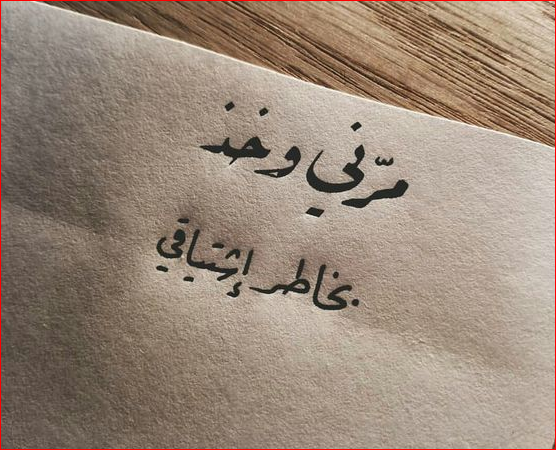 مرّني وخذ
بخاطر إشتياقي